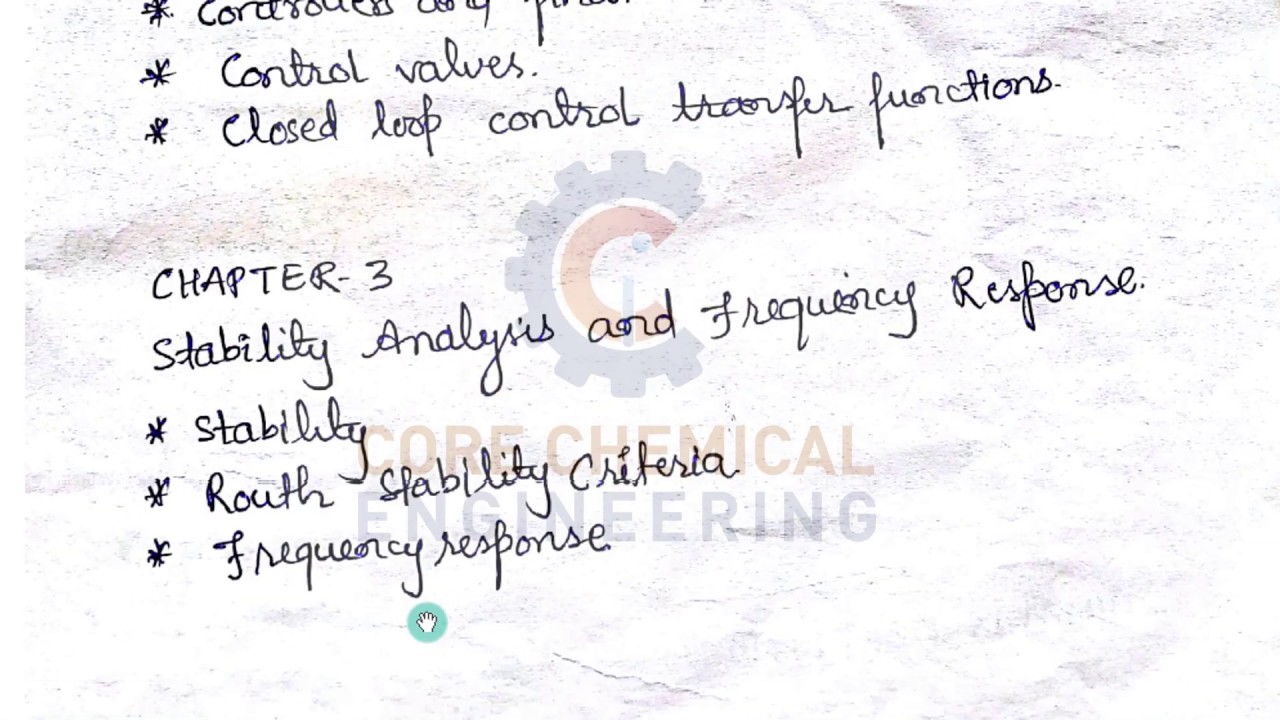 * Controllers and final
* Control valves.
* Closed loop control transfer functions.
CHAPTER-3
Stability Analysis and Frequency Response.
* Stability
* Routh Stability Criteria
* Frequency response.
CORE CHEMICAL
ENGINEERING